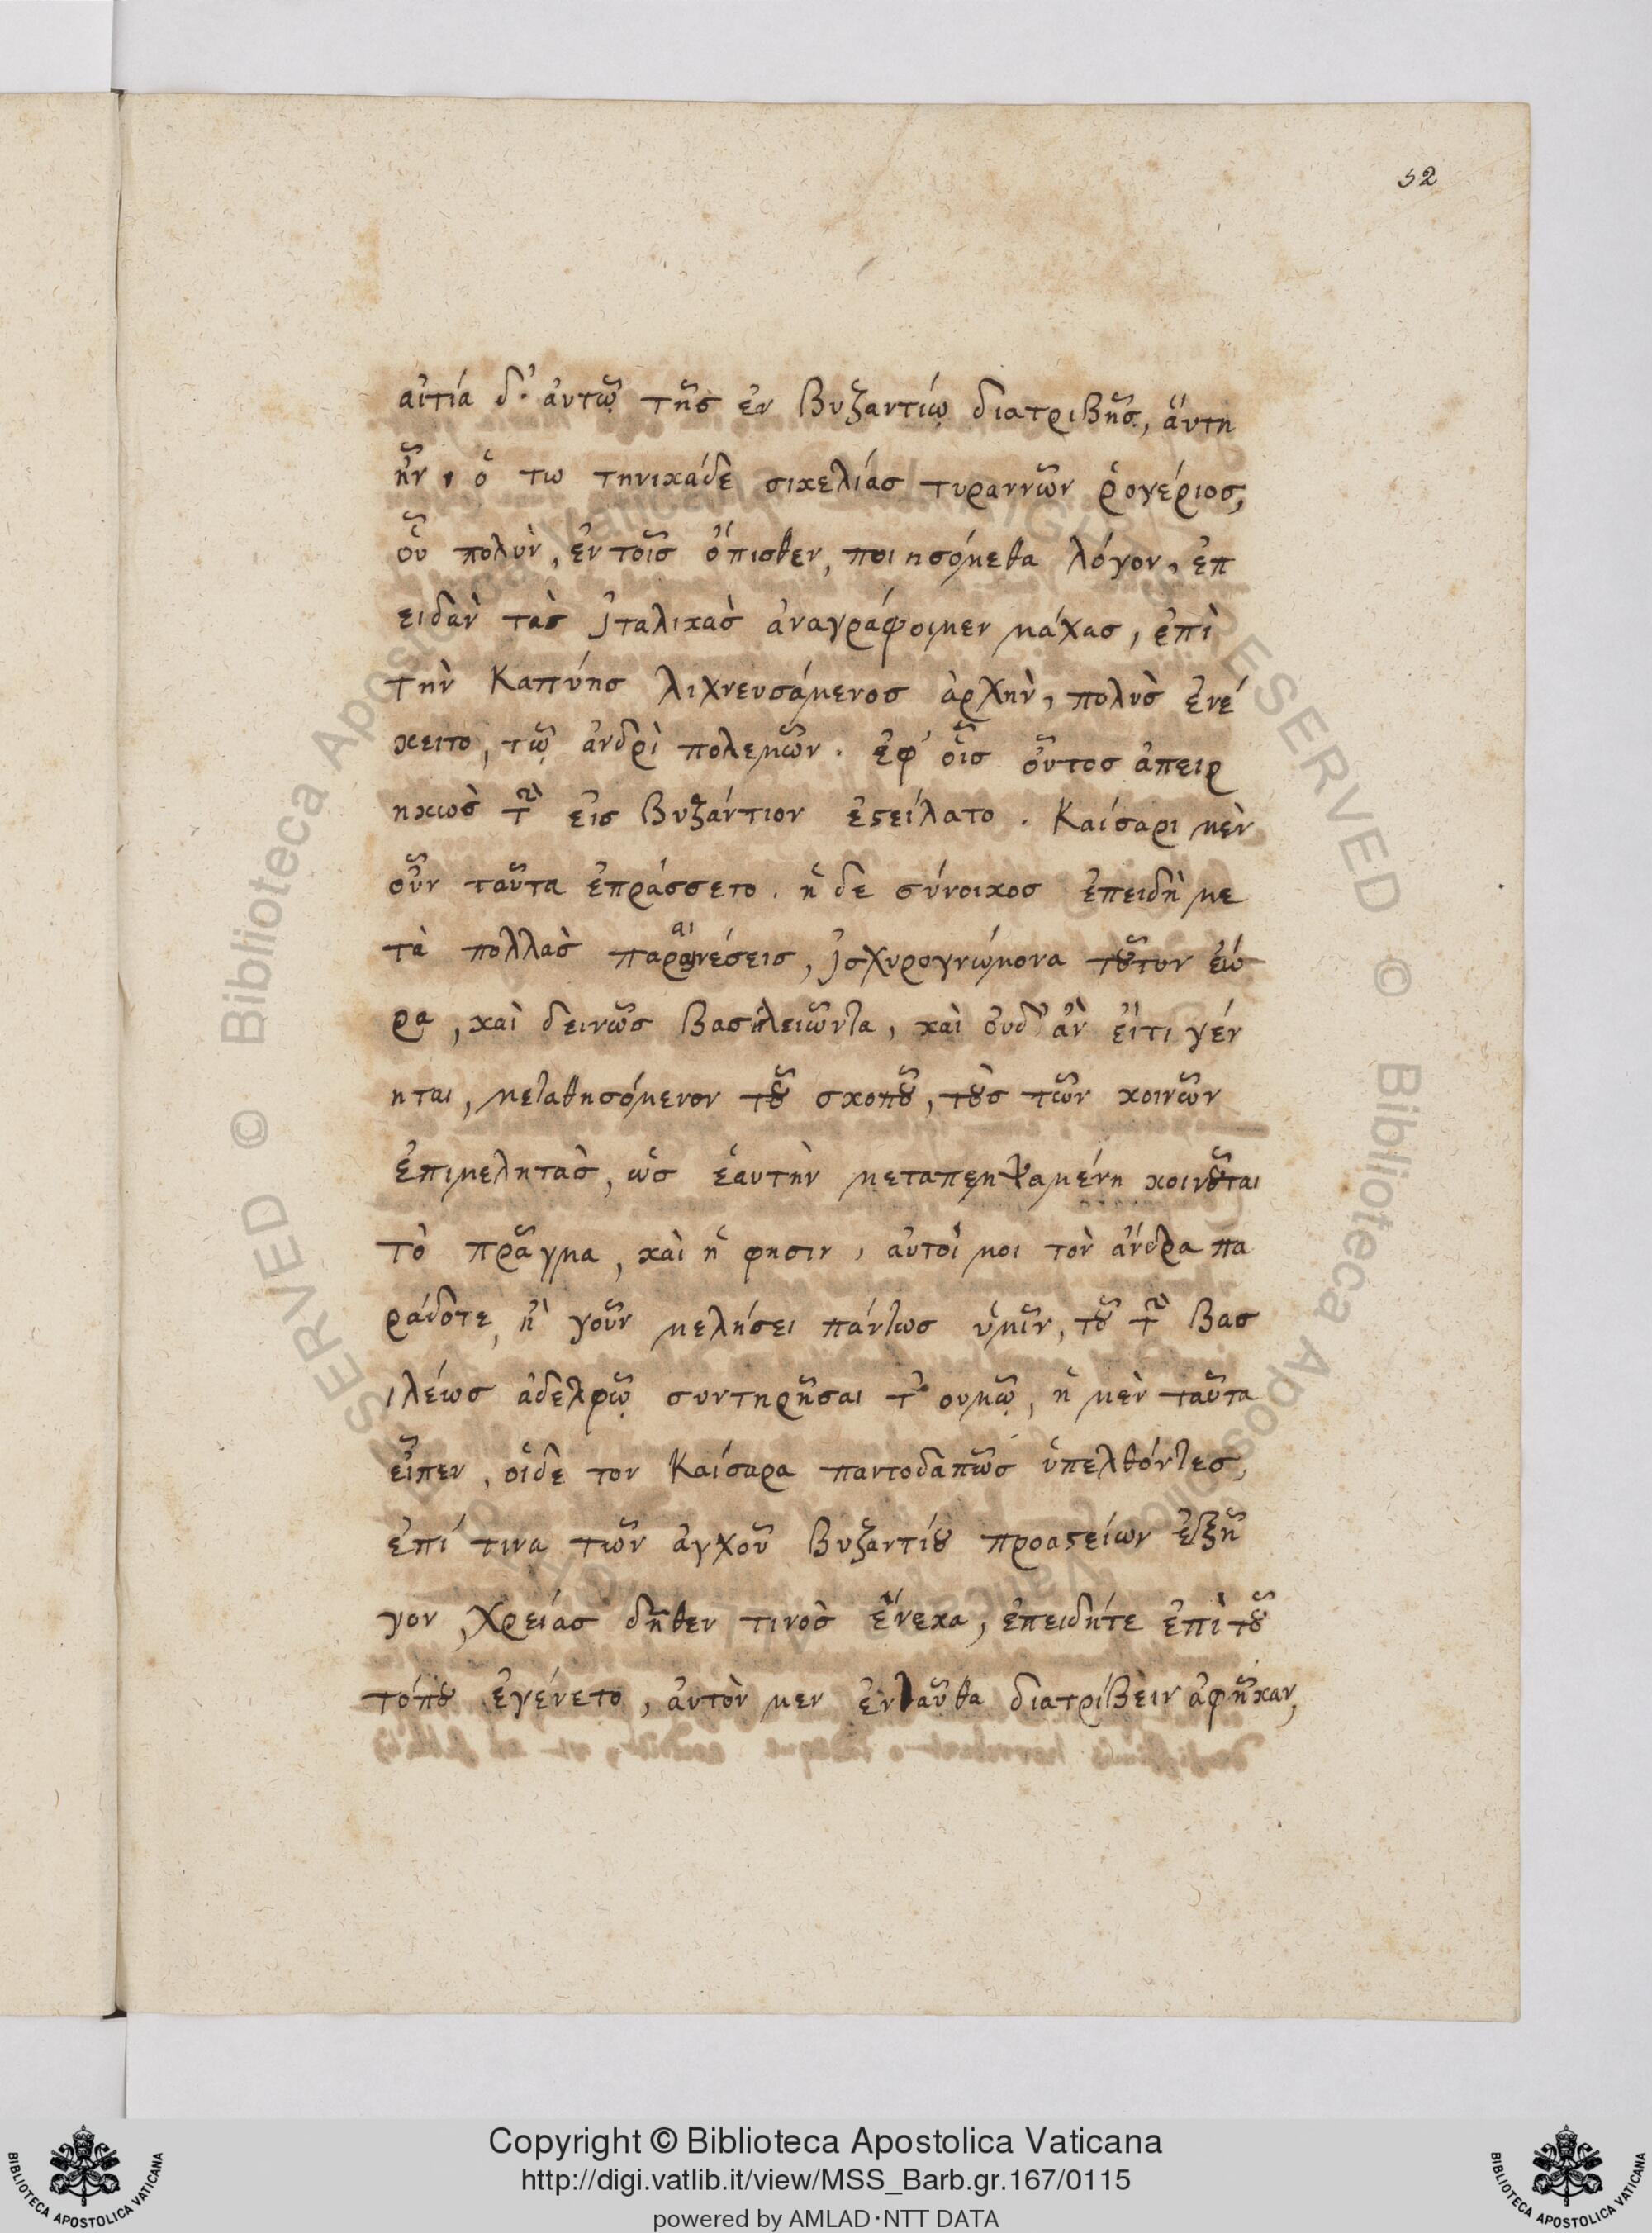 52
αἰτία δ' ἀυτῶ τῆς ἐν Βυζαντίω διατριβῆς, ἅυτη
ἦν, ὁ τω τηνικάδε σικελίας τυραννῶν ῥογέριος,
οὗ πολὺν, ἐν τοῖς ὄπισθεν, ποιησόμεθα λόγον, ἐπ
ειδὰν τὰς Ἰταλικὰς ἀναγράφοιμεν μάχας, ἐπὶ
τὴν Καπύης λιχνευσάμενος ἀρχὴν, πολὺς ἐνέ
κειτο, τῶ ἀνδρὶ πολεμῶν. ἐφ' οἷς οὗτος ἀπειρ
ηκὼς τὴν εἰς Βυζάντιον ἐςείλατο. Καίσαρι μὲν
οὖν ταῦτα ἐπράσσετο. ἡ δε σύνοικος ἐπειδὴ με
τὰ πολλὰς παραινέσεις, ἰσχυρογνώμονα τȣ͂τον ἑώ
ρα, καὶ δεινῶς Βασιλειῶντα, καὶ ὀυδ' ἂν εἴτι γέν
ηται, μεταθησόμενον τȣ͂ σκοπȣ͂, τȣ̀ς τῶν κοινῶν
ἐπιμελητὰς, ὡς ἑαυτὴν μεταπεμψαμένη κοινȣ͂ται
τὸ πρᾶγμα, καὶ ἡ φησιν, αὐτοί μοι τὸν ἄνδρα πα
ράδοτε, ἢ γοῦν μελήσει πάντως ὑμῖν, τȣ͂ τὴν Βασ
ιλέως ἀδελφῶ συντηρῆσαι τ' ουμῶ, ἡ μὲν ταῦτα
εἶπεν, οἵδε τον Καίσαρα παντοδαπῶς ὑπελθόντες,
ἐπί τινα τῶν ἀγχοῦ Βυζαντίȣ προαςείων ἐξῆ
γον, χρείας δῆθεν τινος ἕνεκα, ἐπειδήτε ἐπὶ τȣ͂
τόπȣ ἐγένετο, ἀυτὸν μεν ἐνταῦθα διατρίβειν ἀφῆκαν,
Copyright © Biblioteca Apostolica Vaticana
http://digi.vatlib.it/view/MSS_Barb.gr.167/0115
powered by AMLAD·NTT DATA